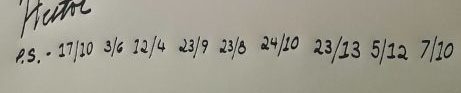 Hector
P.S. - 17/10 3/6 12/4 23/9 23/8 24/10 23/13 5/12 7/10